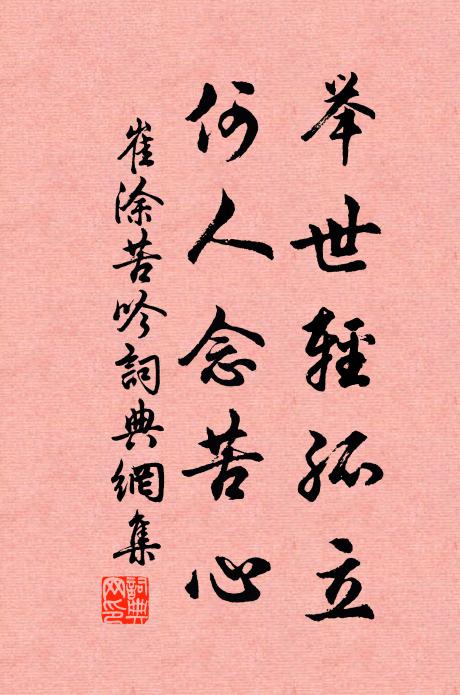 举世輕孤立
何人念苦心
崔涂苦吟詞典網集
詞典
网印